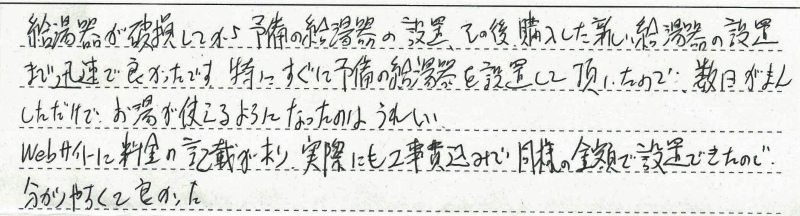 給湯器が破損してから予備の給湯器の設置、その後購入した新しい給湯器の設置
まで迅速で良かったです。特にすぐに予備の給湯器を設置して頂いたので、数日がまん
しただけで、お湯が使えるようになったのはうれしい。
Webサイトに料金の記載があり、実際にも工事費込みで同様の金額で設置できたので
分かりやすくて良かった